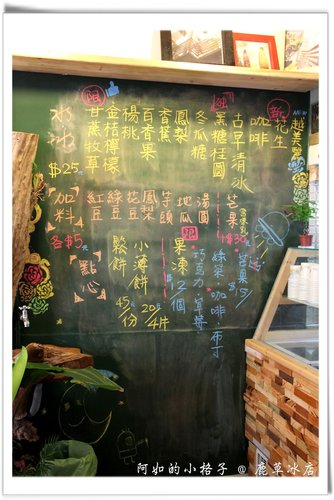 冰沙
$25元
甘蔗牧草
金桔檸檬
楊桃
百香果
香蕉
鳳梨
冬瓜糖
黑糖桂圓
古早清冰
咖啡
花生
越美麗
限
加料
各$5元
紅豆
綠豆
花豆
鳳梨
芋頭
地瓜
湯圓
芒果
$30
點心
鬆餅
45/份
小薄餅
20元/4片
果凍
12/個
巧克力·草莓
綠茶·咖啡·布丁
芒果15
阿如的小格子 @ 鹿草冰店